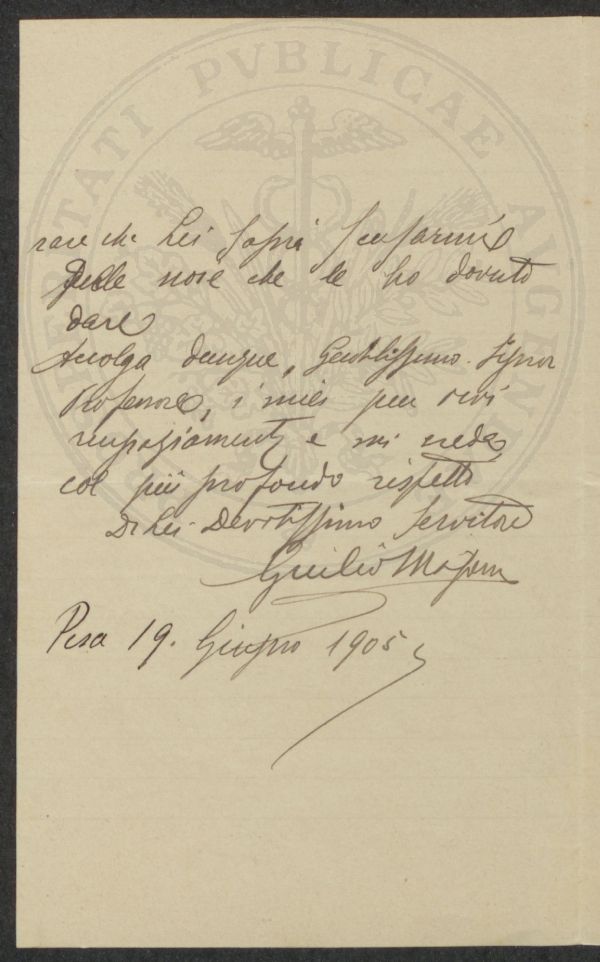 rare che Lei saprà scusarmi
delle noie che le ho dovuto
dare
Accolga dunque, Gentilissimo Signor
Professore, i miei più vivi
ringraziamenti e mi creda
col più profondo rispetto
Di Lei Devotissimo Servitore
Giulio
Pisa 19. Giugno 1905
PVBLICAE